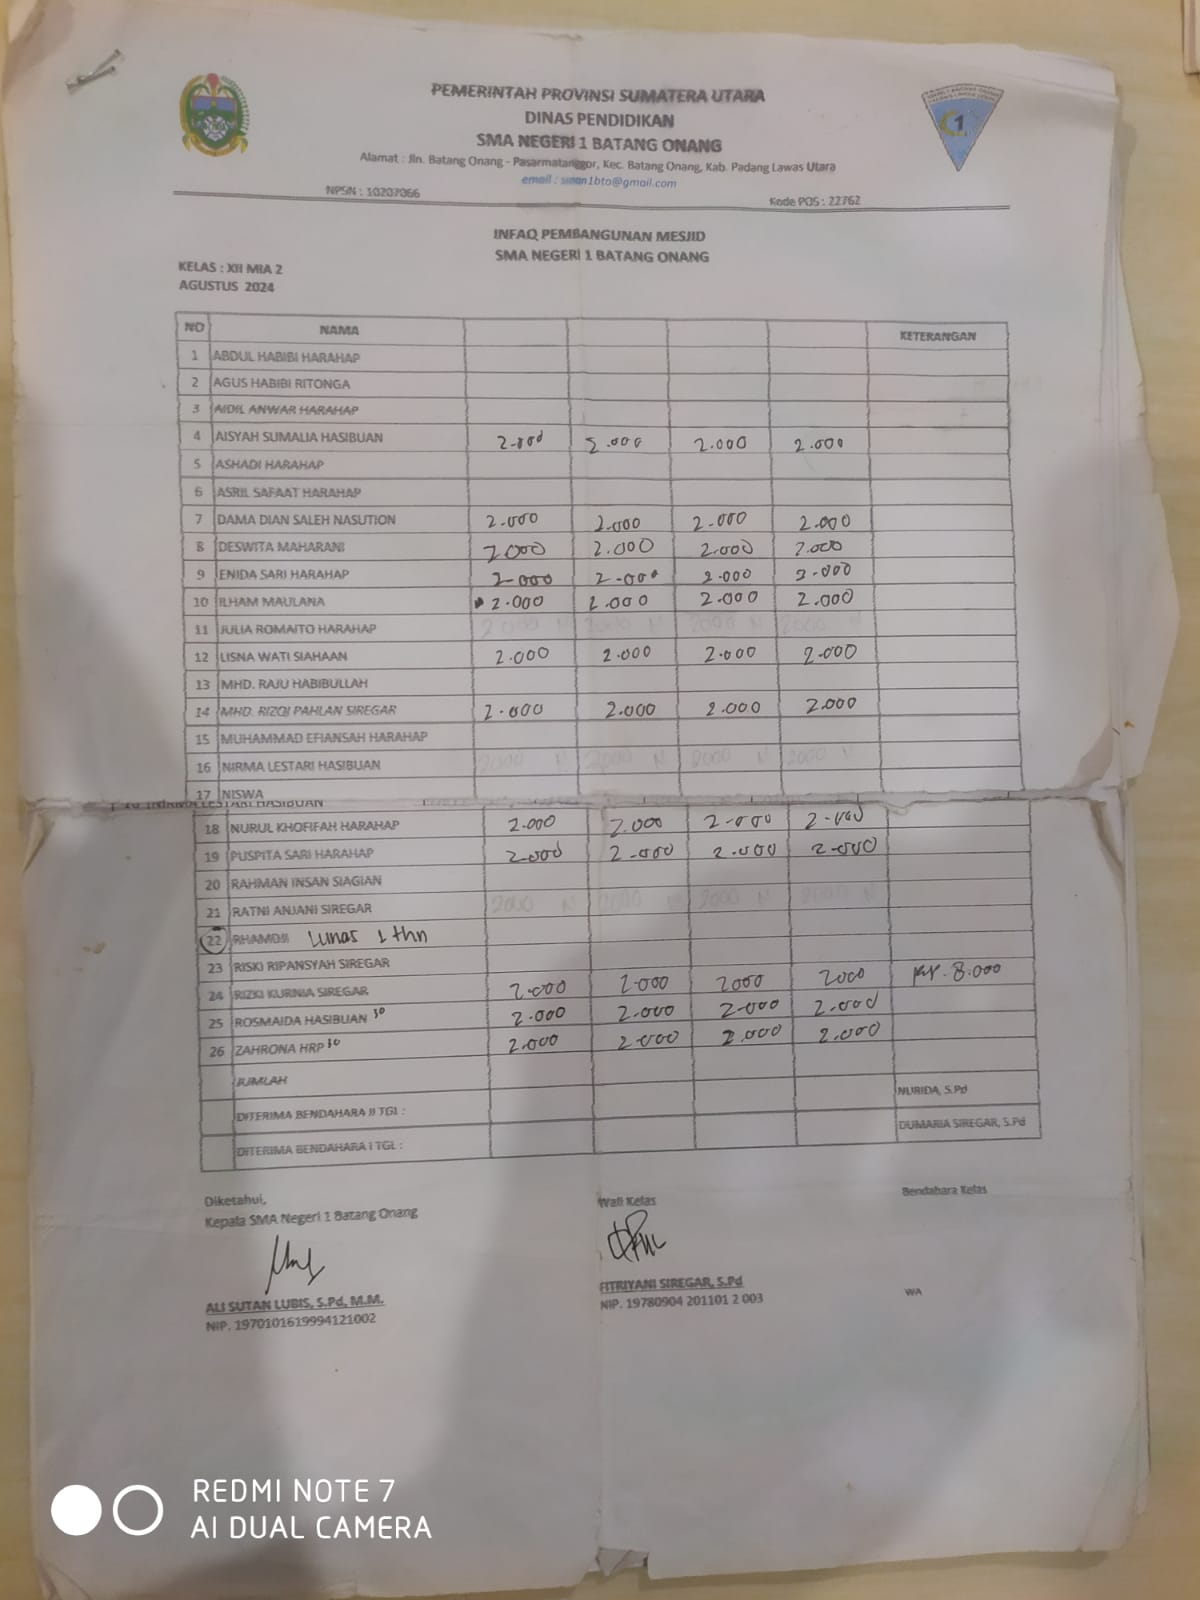 PEMERINTAH PROVINSI SUMATERA UTARA
DINAS PENDIDIKAN
SMA NEGERI 1 BATANG ONANG
Alamat : Jln. Batang Onang - Pasarmatanggor, Kec. Batang Onang, Kab. Padang Lawas Utara
email : sman1bto@gmail.com
NPSN : 10207066 Kode POS : 22762
INFAQ PEMBANGUNAN MESJID
SMA NEGERI 1 BATANG ONANG
KELAS : XII MIA 2
AGUSTUS 2024
NO NAMA KETERANGAN
1 ABDUL HABIBI HARAHAP
2 AGUS HABIBI RITONGA
3 AIDIL ANWAR HARAHAP
4 AISYAH SUMALIA HASIBUAN 2.000 2.000 2.000 2.000
5 ASHADI HARAHAP
6 ASRIL SAFAAT HARAHAP
7 DAMA DIAN SALEH NASUTION 2.000 2.000 2.000 2.000
8 DESWITA MAHARANI 2.000 2.000 2.000 2.000
9 ENIDA SARI HARAHAP 2.000 2.000 2.000 2.000
10 ILHAM MAULANA 2.000 2.000 2.000 2.000
11 JULIA ROMAITO HARAHAP 2000 N 2000 N 2000 N 2000 N
12 LISNA WATI SIAHAAN 2.000 2.000 2.000 2.000
13 MHD. RAJU HABIBULLAH
14 MHD. RIZQI PAHLAN SIREGAR 2.000 2.000 2.000 2.000
15 MUHAMMAD EFIANSAH HARAHAP
16 NIRMA LESTARI HASIBUAN 2000 N 2000 N 2000 N 2000 N
17 NISWA
16 NIRMA LESTARI HASIBUAN
18 NURUL KHOFIFAH HARAHAP 2.000 2.000 2.000 2.000
19 PUSPITA SARI HARAHAP 2.000 2.000 2.000 2.000
20 RAHMAN INSAN SIAGIAN
21 RATNI ANJANI SIREGAR 2000 N 2000 N 2000 N 2000 N
22 RHAMDJI Lunas 1 thn
23 RISKI RIPANSYAH SIREGAR
24 RIZKI KURNIA SIREGAR 2.000 2.000 2000 2000 Rp. 8.000
25 ROSMAIDA HASIBUAN 30 2.000 2.000 2.000 2.000
26 ZAHRONA HRP 30 2.000 2.000 2.000 2.000
JUMLAH
DITERIMA BENDAHARA II TGL : NURIDA, S.Pd
DITERIMA BENDAHARA I TGL : DUMARIA SIREGAR, S.Pd
Diketahui, Wali Kelas Bendahara Kelas
Kepala SMA Negeri 1 Batang Onang
ALI SUTAN LUBIS, S.Pd, M.M. FITRIYANI SIREGAR, S.Pd WA
NIP. 1970101619994121002 NIP. 19780904 201101 2 003
REDMI NOTE 7
AI DUAL CAMERA